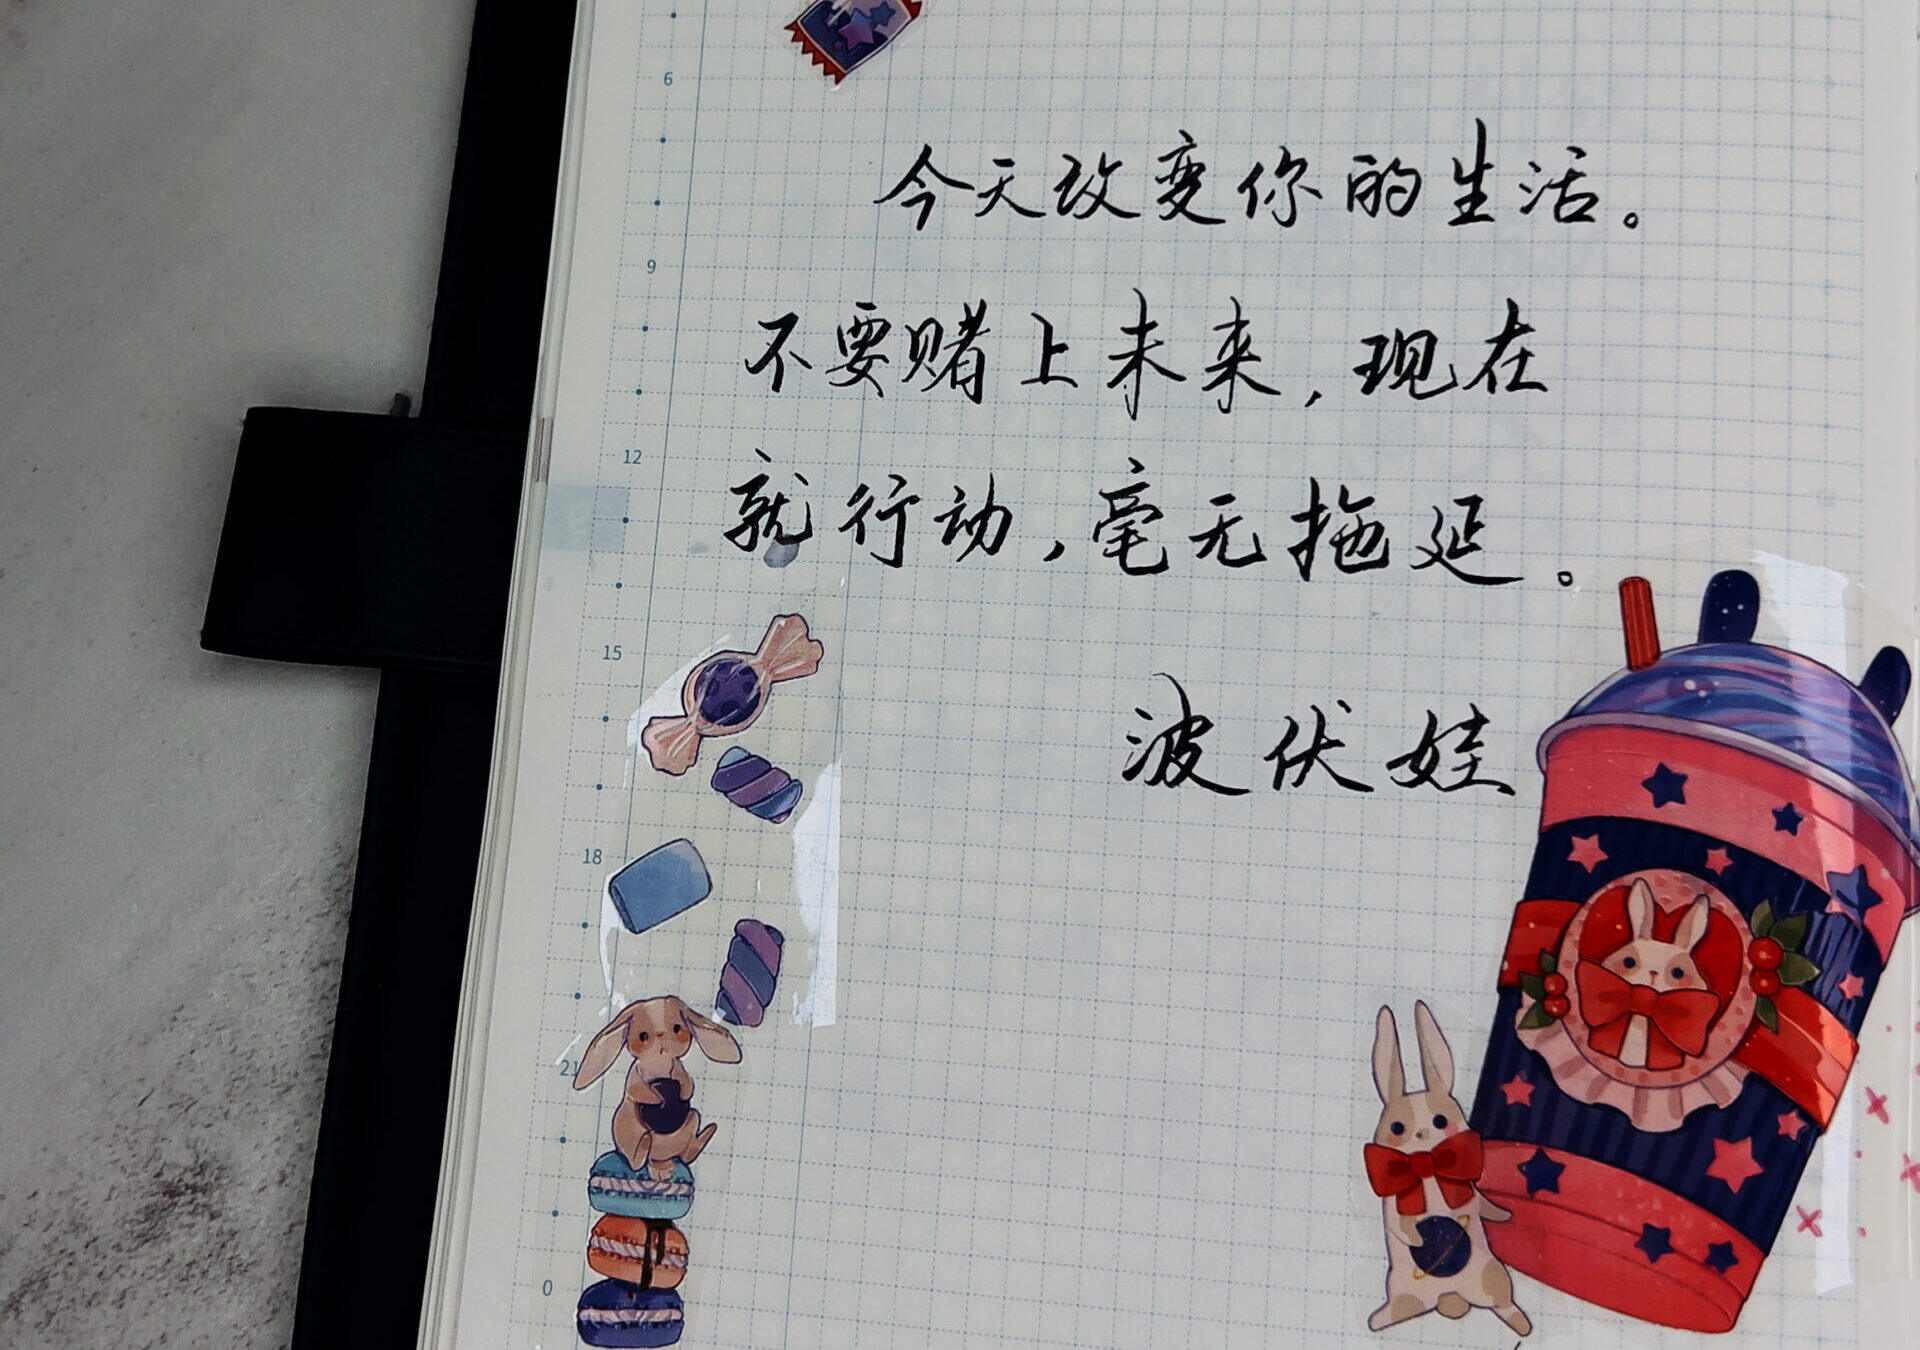 6
今天改变你的生活。
9
不要赌上未来，现在
12
就行动，毫无拖延。
15
波伏娃
18
21
0